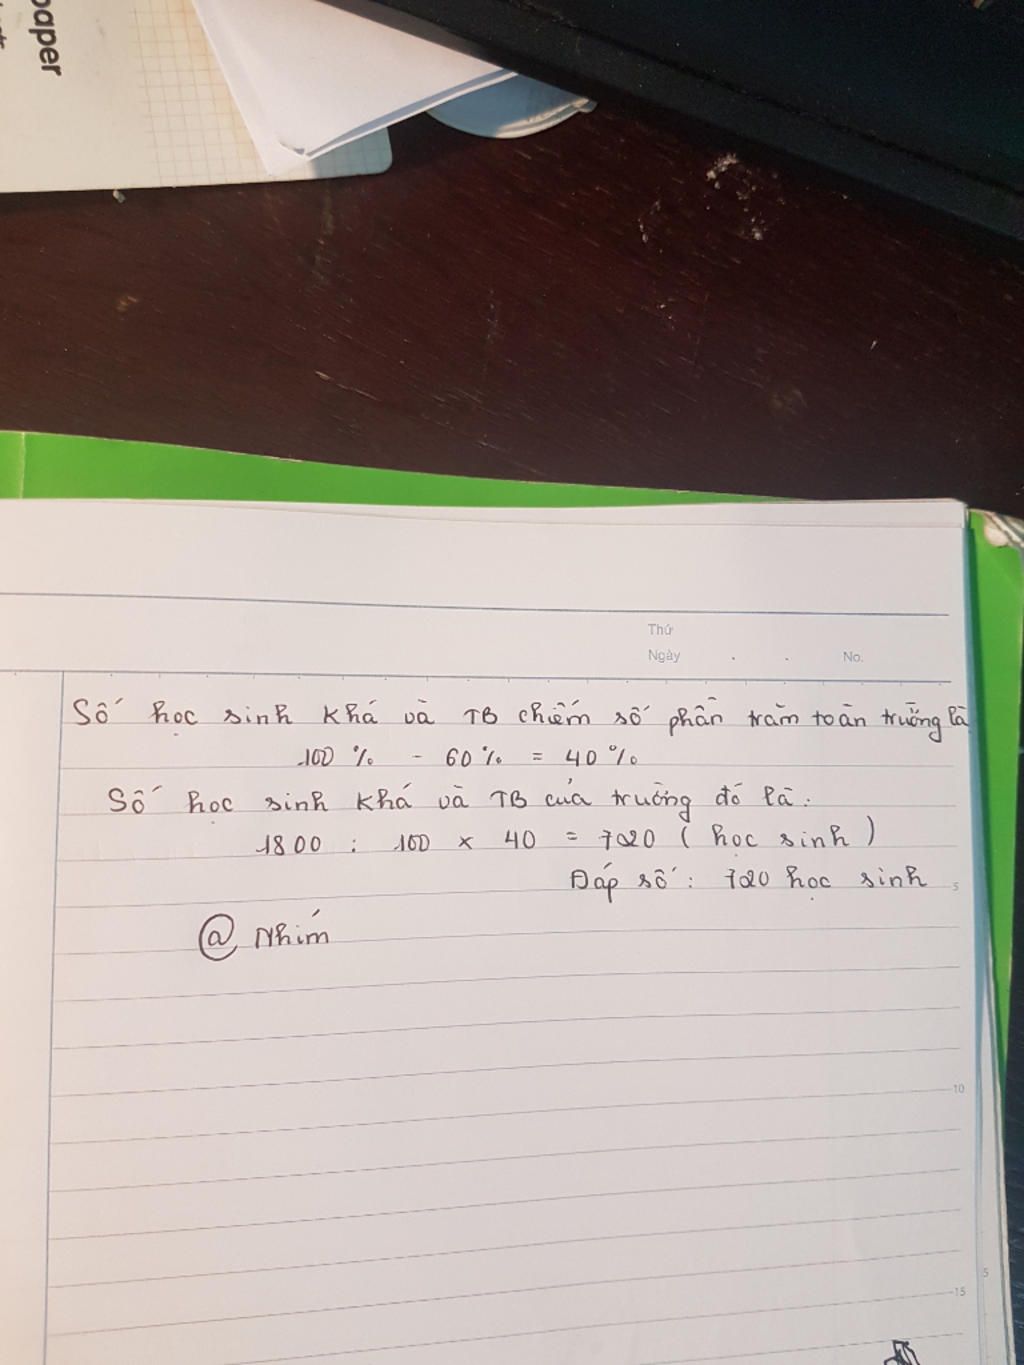 paper
Thứ
Ngày . . No.
Số học sinh khá và TB chiếm số phần trăm toàn trường là
100 % - 60 % = 40 %
Số học sinh khá và TB của trường đó là:
1800 : 100 x 40 = 720 ( học sinh )
Đáp số : 720 học sinh
5
@ Nhím
10
5
15